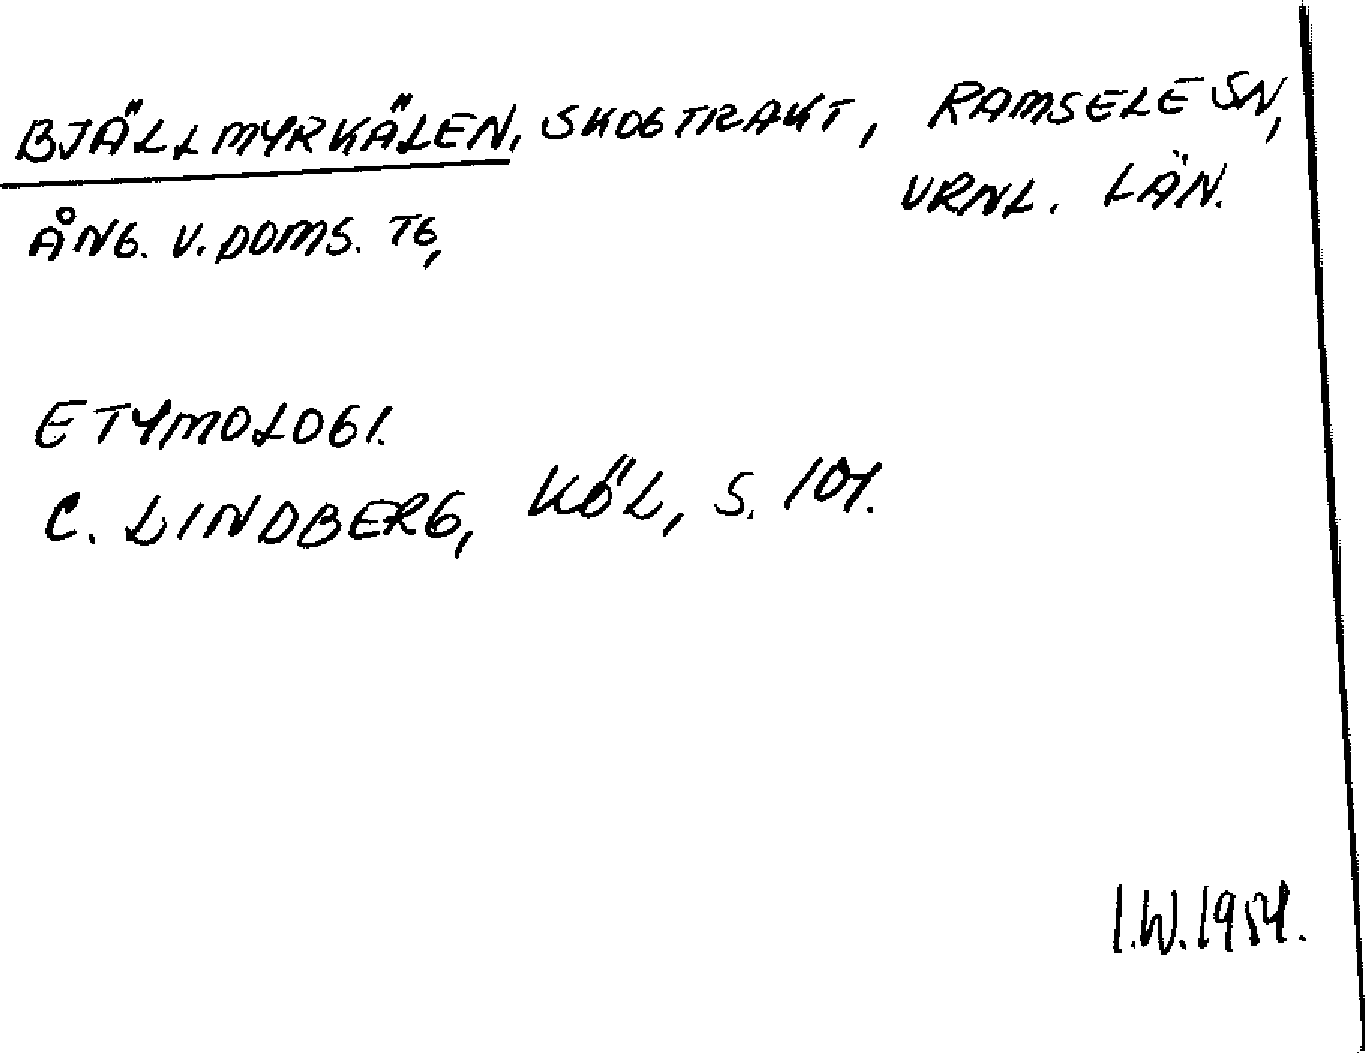 BJÄLLMYRKÄLEN, SKOGTRAKT, RAMSELE SN,
VRNL. LÄN.
ÅNG. V. DOMS. TG,
ETYMOLOGI.
C. LINDBERG, KÖL, S. 101.
I.W. 1954.